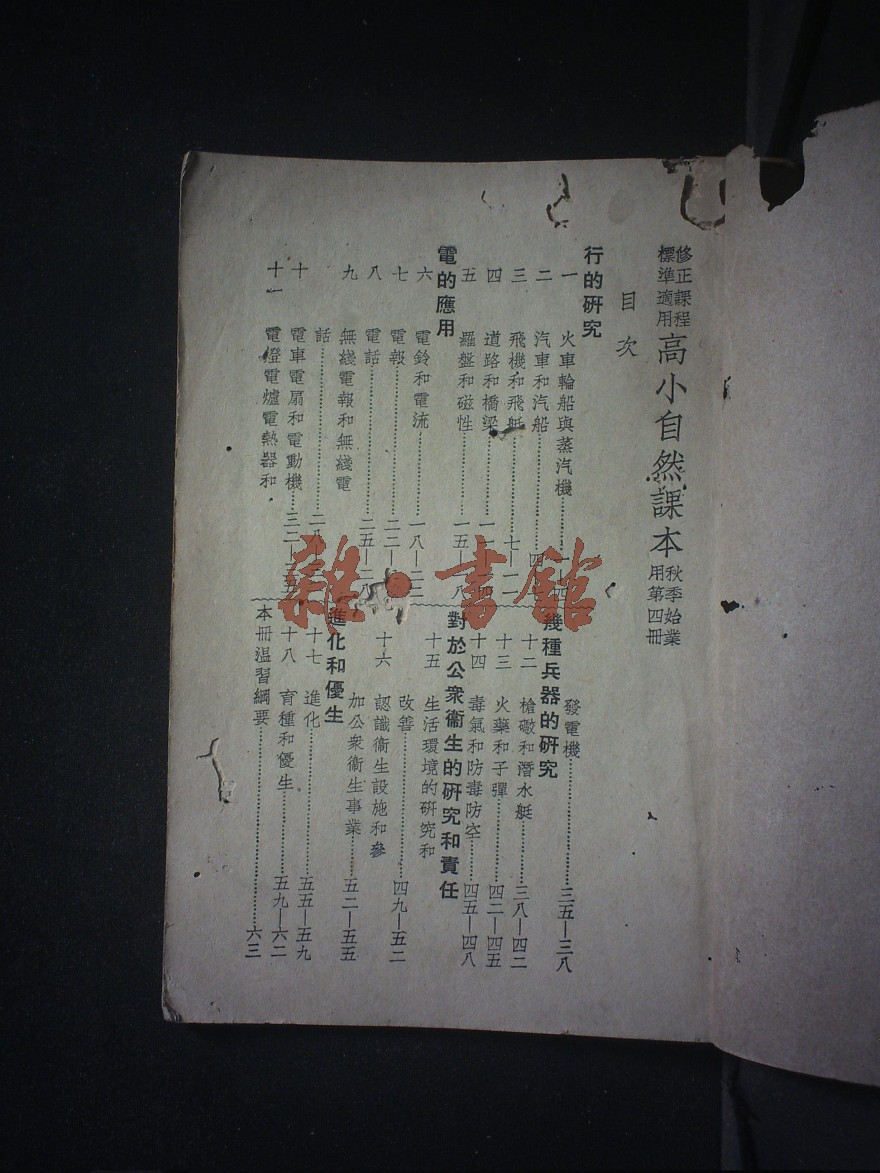 修正課程
標準適用
高小自然課本
秋季始業
用第四冊
目次
行的研究
一 火車輪船與蒸汽機 一—四
二 汽車和汽船 四
三 飛機和飛艇 七—一一
四 道路和橋梁 一一—一四
五 羅盤和磁性 一五—一八
電的應用
六 電鈴和電流 一八—二二
七 電報 二二
八 電話 二五—二八
九 無綫電報和無綫電
話 二八
十 電車電扇和電動機 三二—三五
十一 電燈電爐電熱器和
發電機 三五—三八
幾種兵器的研究
十二 槍礮和潛水艇 三八—四二
十三 火藥和子彈 四二—四五
十四 毒氣和防毒防空 四五—四八
對於公衆衞生的研究和責任
十五 生活環境的研究和
改善 四九—五二
十六 認識衞生設施和參
加公衆衞生事業 五二—五五
進化和優生
十七 進化 五五—五九
十八 育種和優生 五九—六二
本冊温習綱要 六三
雜·書館